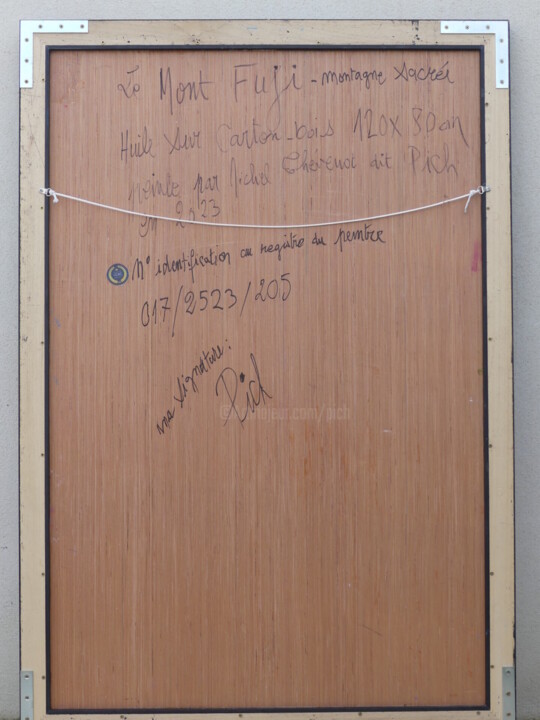 Le Mont Fuji - montagne sacrée
Huile sur Carton-bois 120 X 80 cm
peinte par Michel dit Pich
en 2023
n° identification au registre du peintre
017/2523/205
ma signature:
Pich